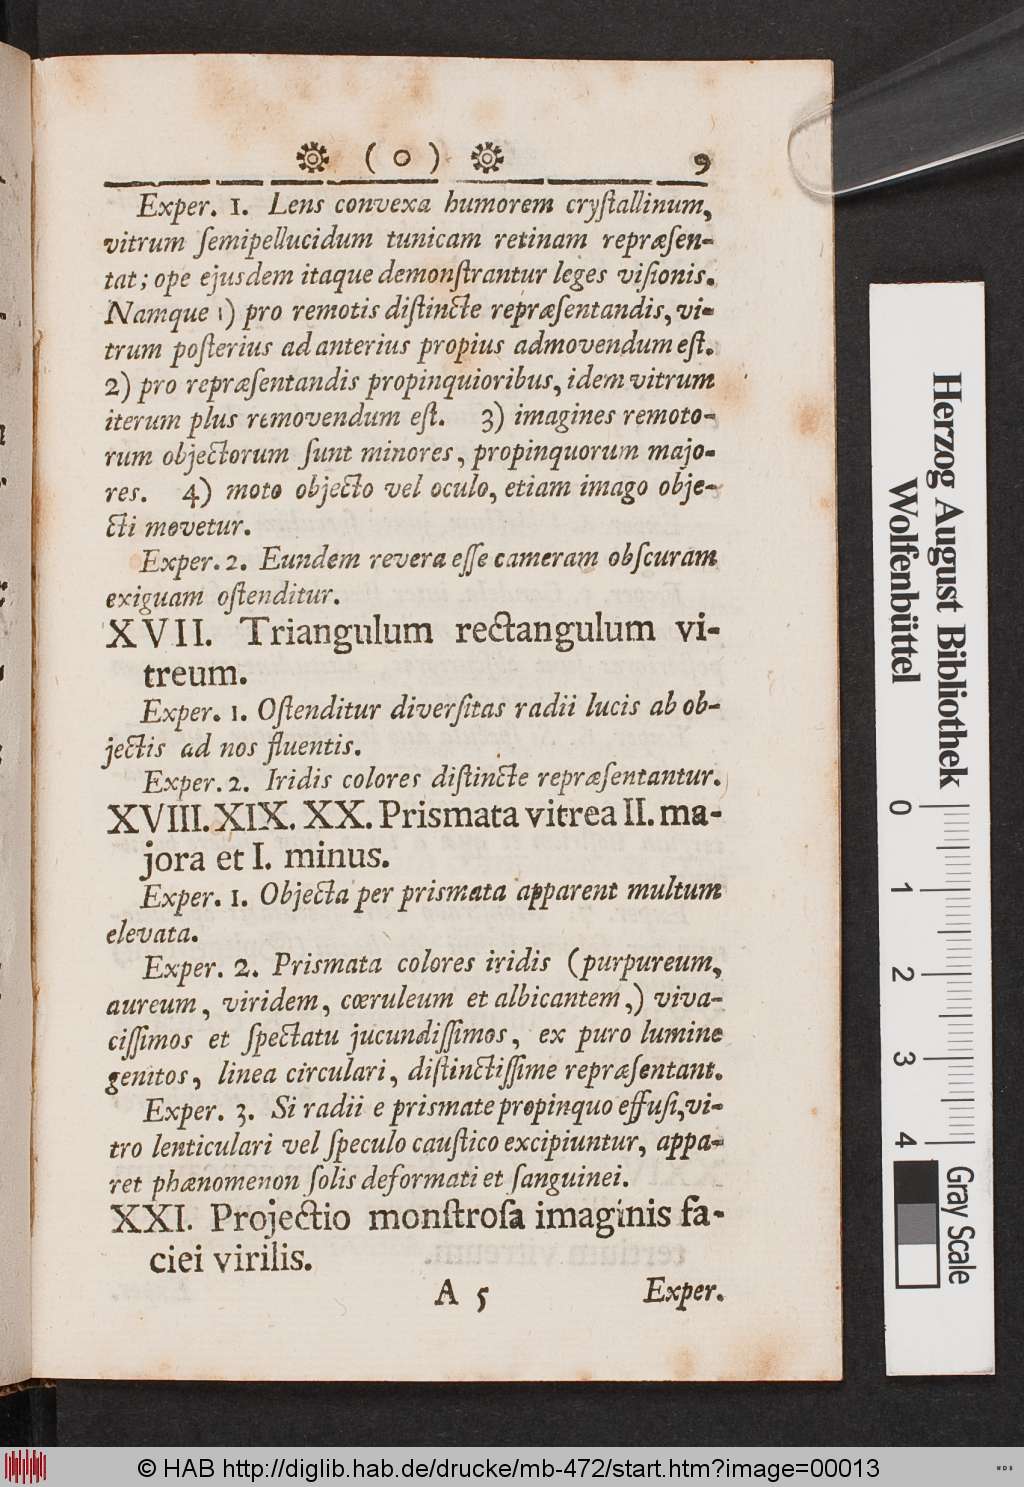 ( o ) 9
Exper. 1. Lens convexa humorem cryſtallinum,
vitrum ſemipellucidum tunicam retinam repræſen-
tat; ope ejusdem itaque demonſtrantur leges viſionis.
Namque 1) pro remotis diſtincte repræſentandis, vi-
trum poſterius ad anterius propius admovendum eſt.
2) pro repræſentandis propinquioribus, idem vitrum
iterum plus removendum eſt. 3) imagines remoto-
rum objectorum ſunt minores, propinquorum majo-
res. 4) moto objecto vel oculo, etiam imago obje-
cti movetur.
Exper. 2. Eundem revera eſſe cameram obſcuram
exiguam oſtenditur.
XVII. Triangulum rectangulum vi-
treum.
Exper. 1. Oſtenditur diverſitas radii lucis ab ob-
jectis ad nos fluentis.
Exper. 2. Iridis colores diſtincte repræſentantur.
XVIII. XIX. XX. Prismata vitrea II. ma-
jora et I. minus.
Exper. 1. Objecta per prismata apparent multum
elevata.
Exper. 2. Prismata colores iridis (purpureum,
aureum, viridem, cœruleum et albicantem,) viva-
ciſſimos et ſpectatu jucundiſſimos, ex puro lumine
genitos, linea circulari, diſtinctiſſime repræſentant.
Exper. 3. Si radii e prismate propinquo effuſi, vi-
tro lenticulari vel ſpeculo cauſtico excipiuntur, appa-
ret phænomenon ſolis deformati et ſanguinei.
XXI. Projectio monſtroſa imaginis fa-
ciei virilis.
A 5 Exper.
Herzog August Bibliothek
Wolfenbüttel
0 1 2 3 4
Gray Scale
© HAB http://diglib.hab.de/drucke/mb-472/start.htm?image=00013